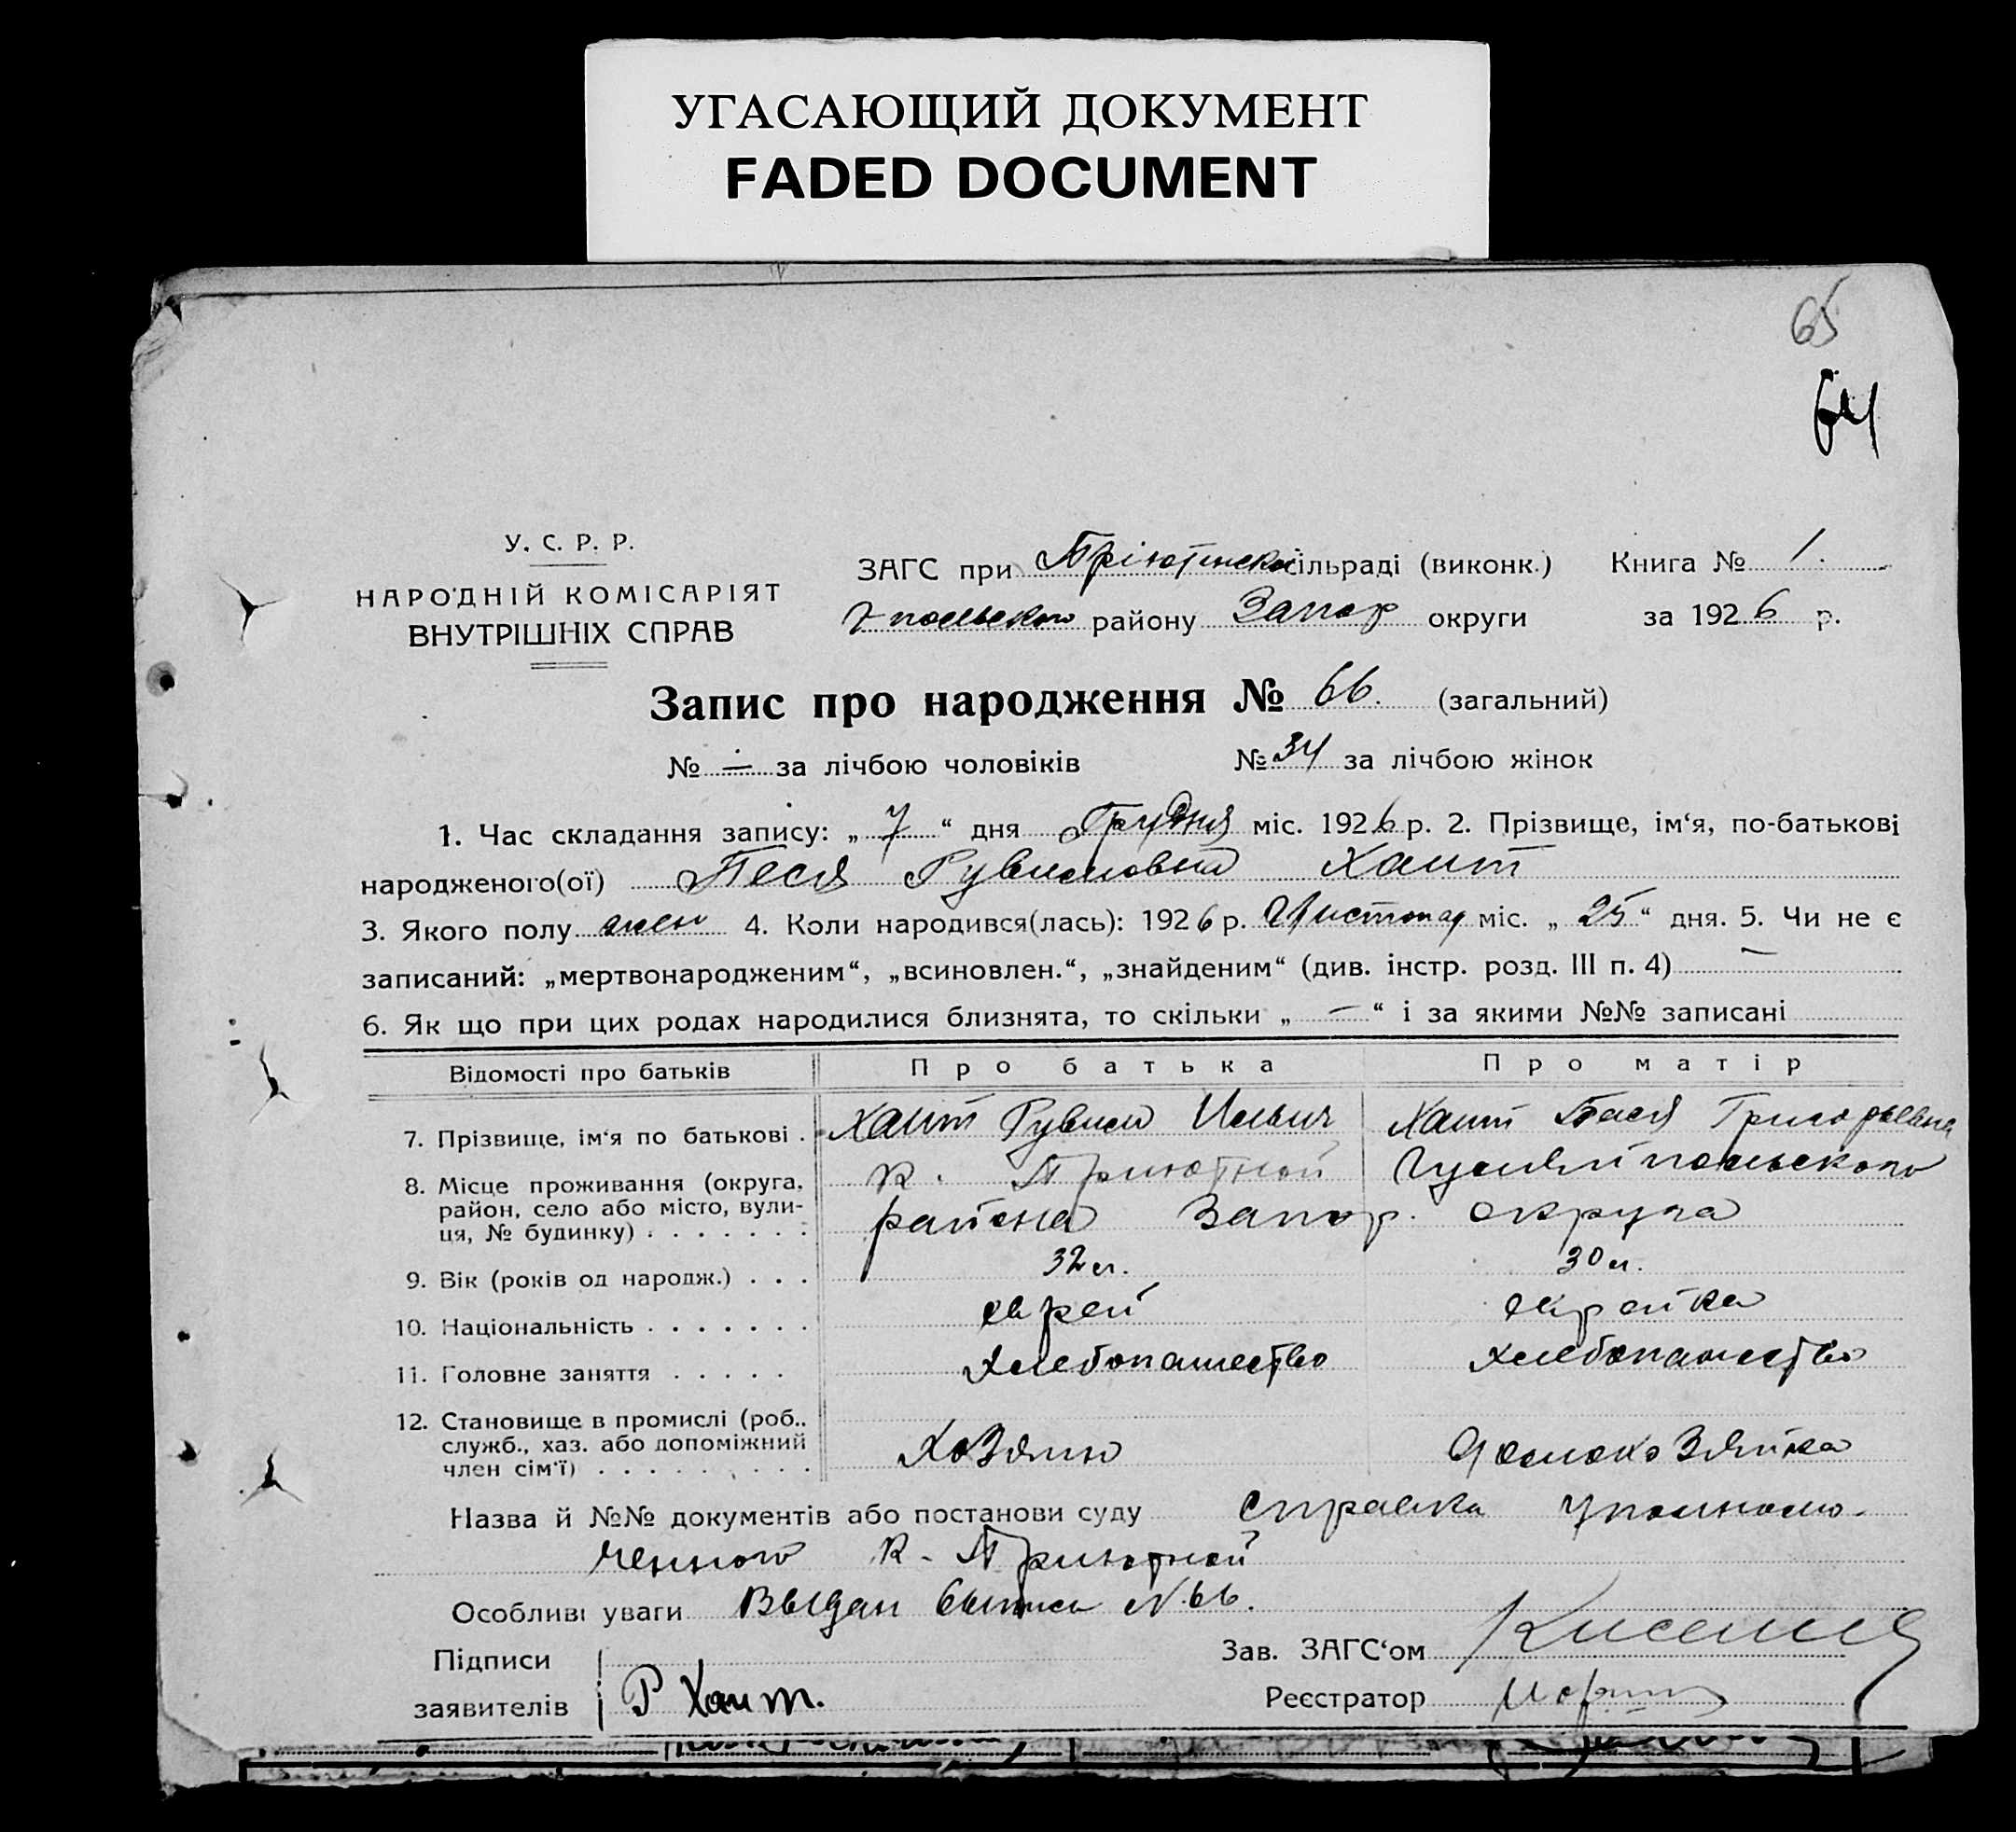 УГАСАЮЩИЙ ДОКУМЕНТ
FADED DOCUMENT
65
64
У. С. Р. Р.
НАРОДНІЙ КОМІСАРІЯТ
ВНУТРІШНІХ СПРАВ
ЗАГС при Пріютинской сільраді (виконк.) Книга № 1.
району Запор округи за 1926 р.
Запис про народження № 66. (загальний)
№ — за лічбою чоловіків № 34 за лічбою жінок
1. Час складання запису: „ 7 “ дня Грудня міс. 1926 р. 2. Прізвище, ім‘я, по-батькові
народженого(ої) Песя Рувиновна Хаит
3. Якого полу жен 4. Коли народився(лась): 1926 р. Листопад міс. „ 25 “ дня. 5. Чи не є
записаний: „мертвонародженим“, „всиновлен.“, „знайденим“ (див. інстр. розд. III п. 4) —
6. Як що при цих родах народилися близнята, то скільки „ — “ і за якими №№ записані
Відомості про батьків Про батька Про матір
7. Прізвище, ім‘я по батькові . Хаит Рувин Ильич Хаит Тася Григорьевна
8. Місце проживання (округа, к. Приютной Гуляйпольского
район, село або місто, вули- района Запор. округа
ця, № будинку) . . . . . . .
9. Вік (років од народж.) . . . 32 л. 30 л.
10. Національність . . . . . . . еврей еврейка
11. Головне заняття . . . . . хлебопашество хлебопашество
12. Становище в промислі (роб..
служб., хаз. або допоміжний Хозяин Домохозяйка
член сім‘ї) . . . . . . . . .
Назва й №№ документів або постанови суду справка уполномо-
ченного к. Приютной
Особливі уваги Выдан выпись №. 66.
Підписи Зав. ЗАГС‘ом
заявителів Р Хаит. Реєстратор